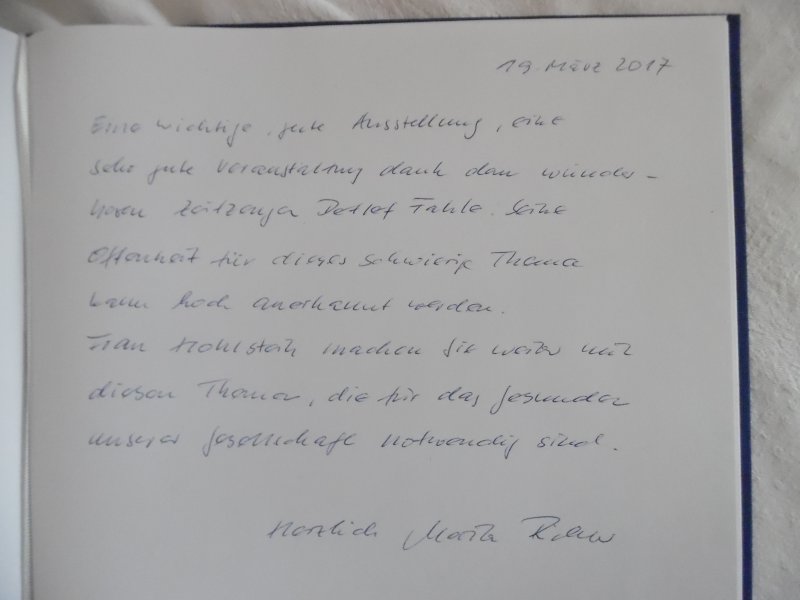 19. März 2017
Eine wichtige, gute Ausstellung, eine
sehr gute Veranstaltung dank dem wunder-
baren Zeitzeugen Detlef Fahle. Seine
Offenheit für dieses schwierige Thema
kann hoch anerkannt werden.
Frau Hohlstein machen Sie weiter mit
diesen Themen, die für das Gesunden
unserer Gesellschaft notwendig sind.
Herzlich